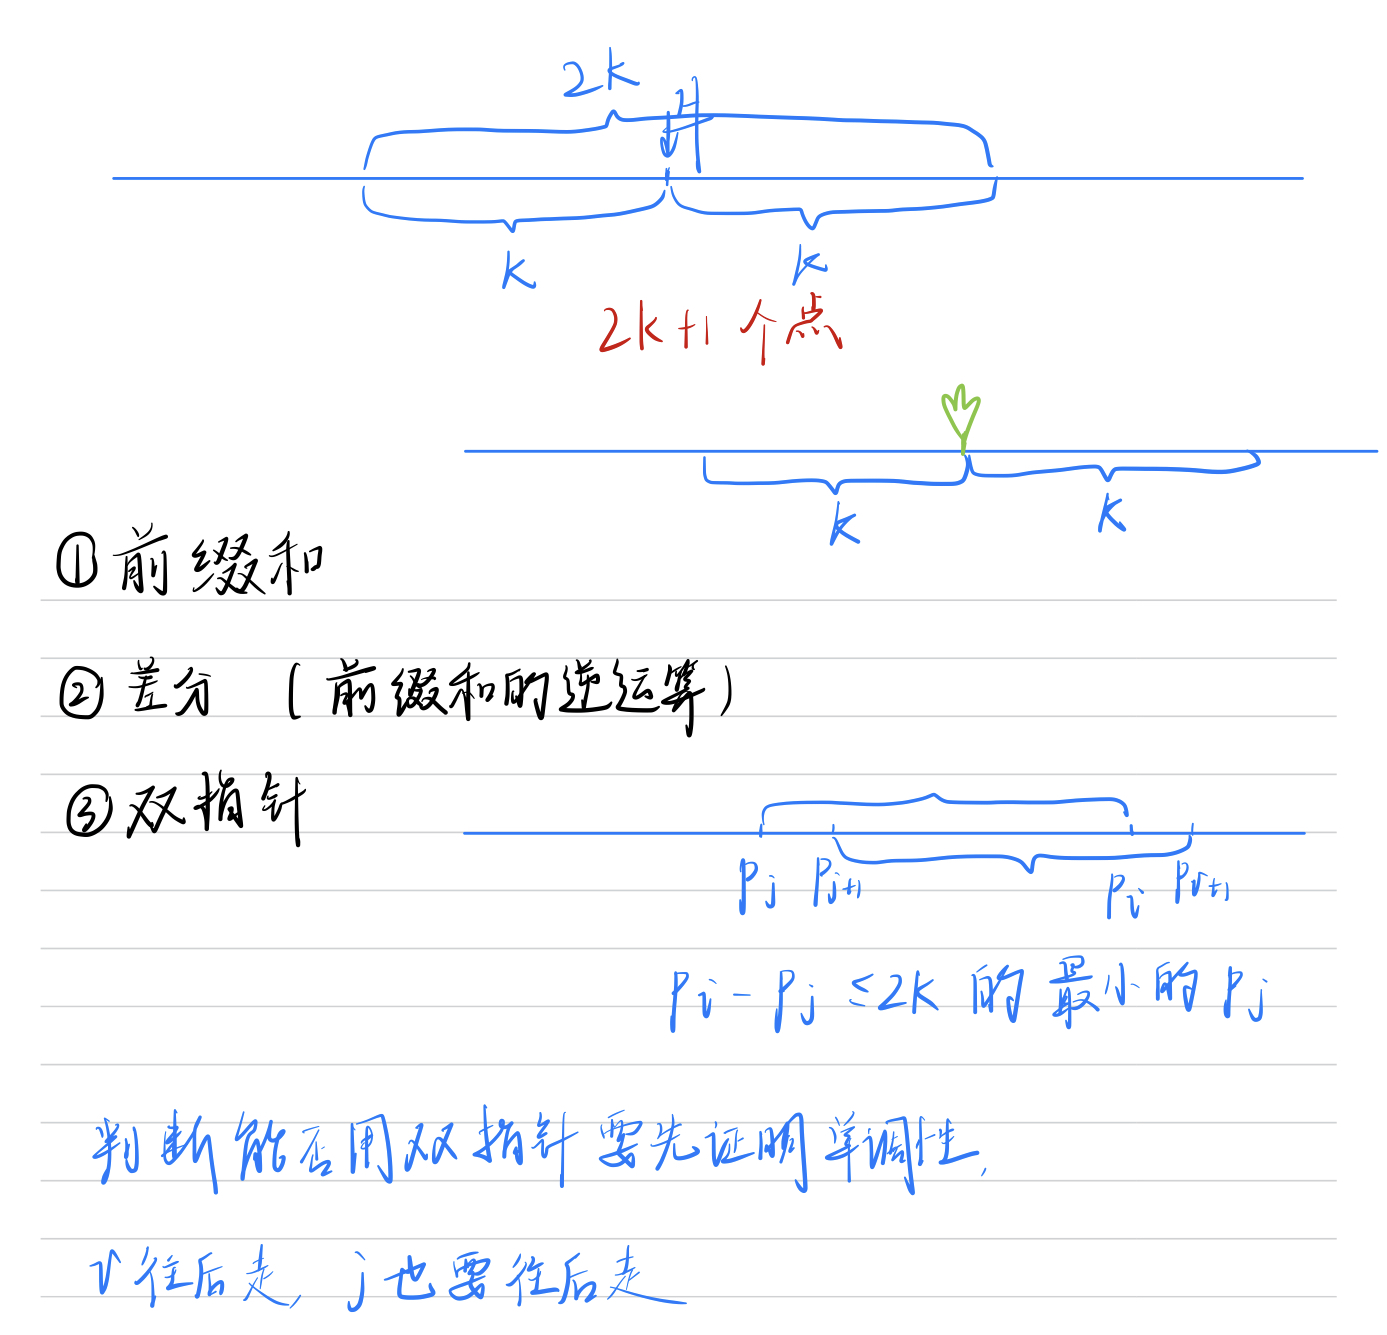 2k
牛
k k
2k+1 个点
k k
① 前缀和
② 差分 (前缀和的逆运算)
③ 双指针
Pj Pj+1 Pi Pi+1
Pi - Pj ≤ 2k 的最小的 Pj
判断能否用双指针要先证明单调性,
i往后走, j也要往后走